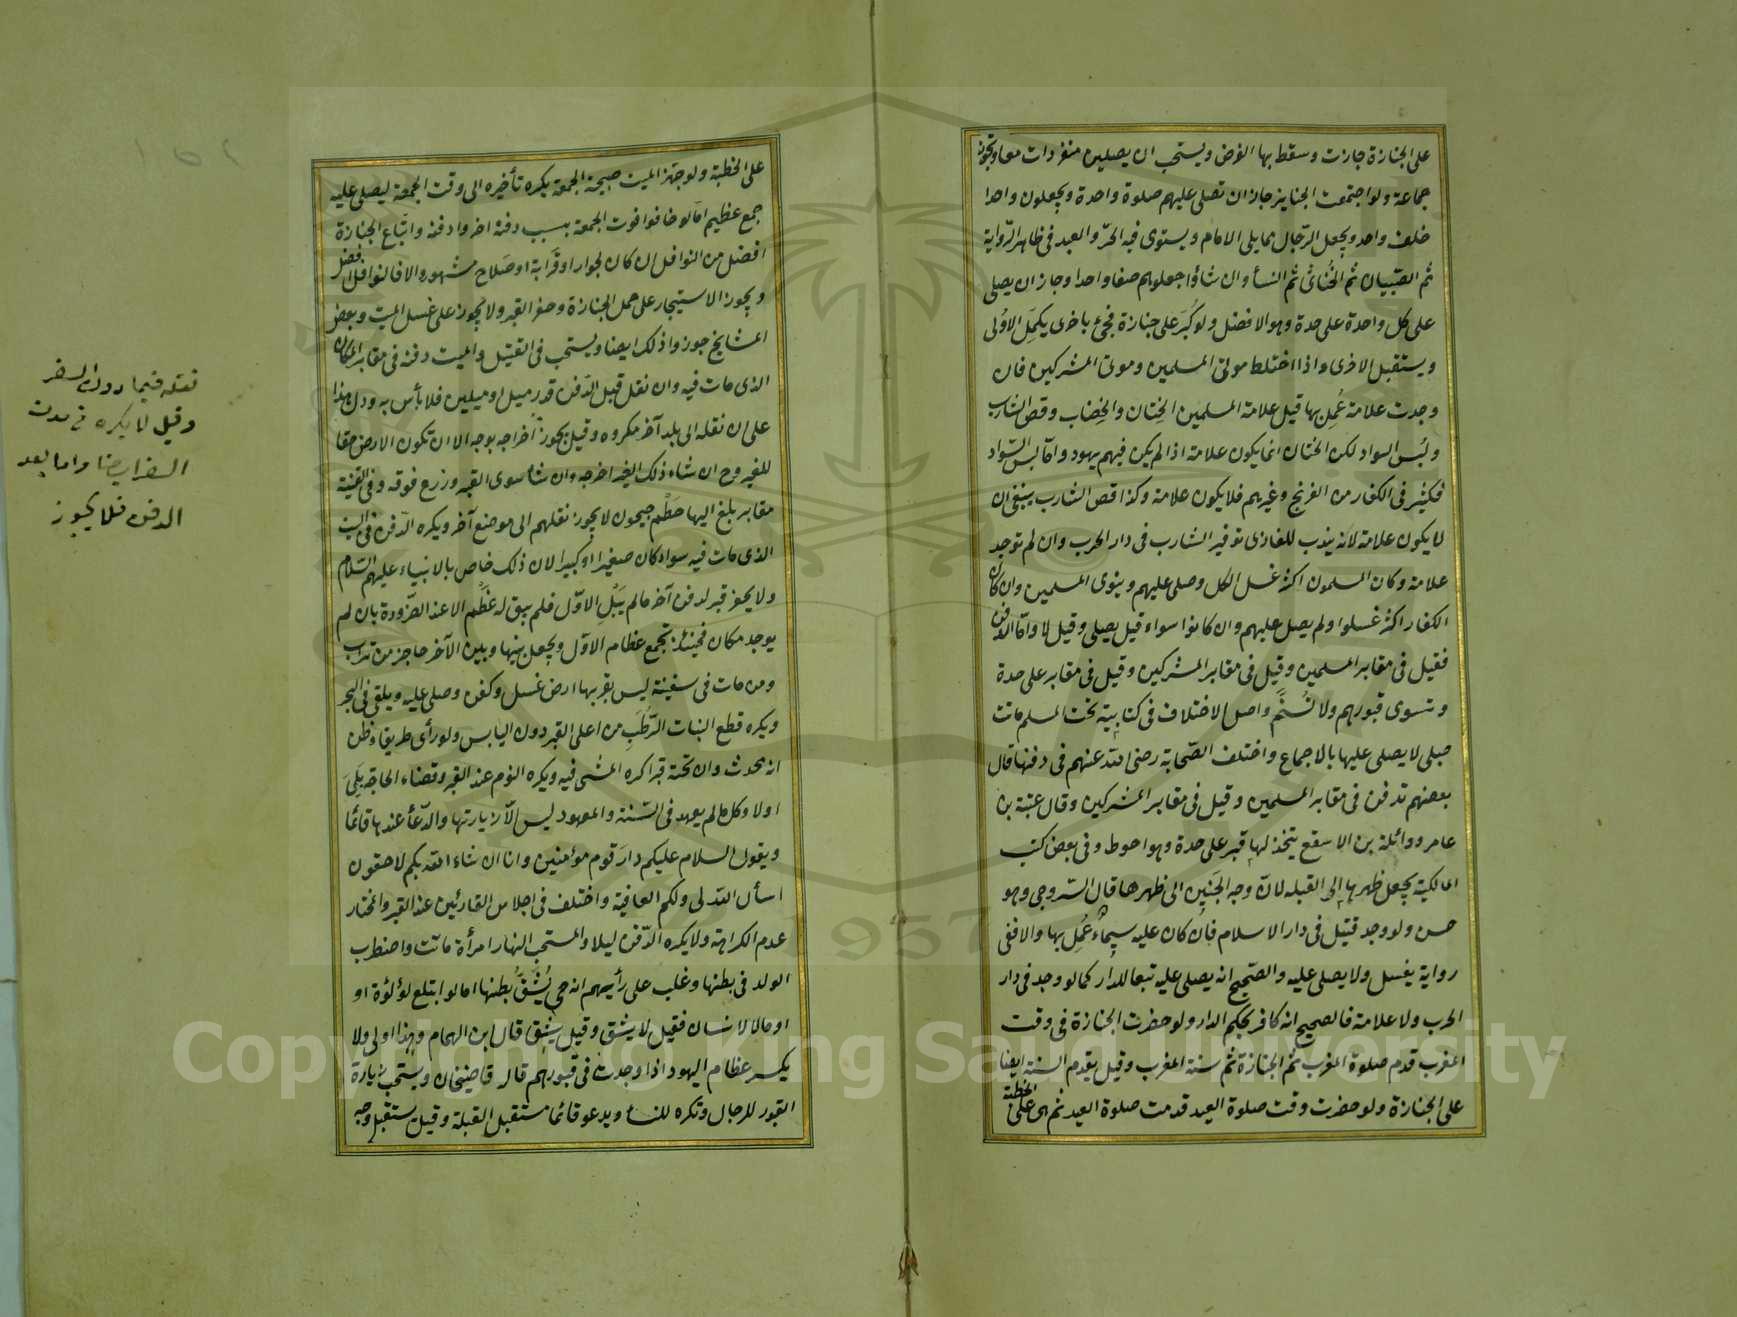 على الجنازة جازت وسقط بها الفرض ويستحب ان يصلين منفردات معا وتجوز
جماعة ولو اجتمعت الجنايز جاز ان تصلى عليهم صلوة واحدة ويجعلون واحدا
خلف واحد ويجعل الرجال مما يلى الامام ويستوى فيه الحرّ والعبد فى ظاهر الرّواية
ثم الصّبيان ثم الخُناثى ثم النسأ وان شاؤا جعلوهم صفا واحدا وجاز ان يصلى
على كل واحدة على حدة وهو الافضل ولو كُبّر على جنازة فجئ باخرى يكمّل الاولى
ويستقبل الاخرى واذا اختلط موتى المسلمين وموتى المشركين فان
وجدت علامة عُمِل بها قيل علامة المسلمين الخِتان والخِضاب وقص الشارب
ولُبس السواد لكن الختان انما يكون علامة اذا لم يكن فيهم يهود وامّا لبس السّواد
فكثير فى الكفار من الفرنج وغيرهم فلا يكون علامة وكذا قص الشارب ينبغى ان
لا يكون علامة لانه يندب للغازى توفير الشارب فى دار الحرب وان لم توجد
علامة وكان المسلمون اكثر غسل الكل وصلى عليهم وينوى المسلمين وان كان
الكفار اكثر غسلوا ولم يصل عليهم وان كانوا سواء قيل يصلى وقيل لا وامّا الدفن
فقيل فى مقابر المسلمين وقيل فى مقابر المشركين وقيل فى مقابر على حدة
وتسوى قبورهم ولا تُسَنَّم واصل الاختلاف فى كتابية تحت المسلم ماتت
حبلى لا يصلى عليها بالاجماع واختلف الصّحابة رضى الله عنهم فى دفنها قال
بعضهم تدفن فى مقابر المسلمين وقيل فى مقابر المشركين وقال عقبة بن
عامر وواثلة بن الاسقع يتخذ لها قبر على حدة وهو احوط وفى بعض كتب
المالكية يجعل ظهرها الى القبلة لانّ وجه الجَنين الى ظهرها قال السّروجى وهو
حسن ولو وجد قتيل فى دار الاسلام فان كان عليه سيماء عُمِل بها والا ففى
رواية يغسل ولا يصلى عليه والصّحيح انه يصلى عليه تبعا للدار كما لو وجد فى دار
الحرب ولا علامة فالصحيح انه كافر بحكم الدار ولو حضرت الجنازة فى وقت
المغرب قدم صلوة المغرب ثم الجنازة ثم سنة المغرب وقيل يقدم السنة ايضا
على الجنازة ولو حضرت وقت صلوة العيد قدمت صلوة العيد ثم هى على الخطبة
على الخطبة ولو جهز الميت صبيحة الجمعة يكره تأخيره الى وقت الجمعة ليصلى عليه
جمع عظيم امّا لو خافوا فوت الجمعة بسبب دفنه اخروا دفنه واتّباع الجنازة
افضل من النوافل ان كان لجوار او قَرابة او صَلاح مشهور والا فالنوافل افضل
ويجوز الاستيجار على حمل الجنازة وحفر القبر ولا يجوز على غسل الميت وبعض
المشايخ جوزوا ذلك ايضا ويستحب فى القتيل والميت دفنه فى مقابر المكان
الذى مات فيه وان نقل قبل الدّفن قدر ميل او ميلين فلا بأس به ودل هذا
على ان نقله الى بلد آخر مكروه وقيل يجوز اخراجه بوجه الا ان تكون الارض حقا
للغير وح ان شاء ذلك الغير اخرجه وان شا سوى القبر وزرع فوقه وفى القنية
مقابر بلغ اليها حَطْم جيحون لا يجوز نقلهم الى موضع آخر ويكره الدّفن فى البيت
الذى مات فيه سواء كان صغيرا او كبيرا لان ذلك خاص بالانبياء عليهم السّلام
ولا يحفر قبر لدفن آخر ما لم يَبْلَ الاوّل فلم يبق له عَظْم الا عند الضّرورة بان لم
يوجد مكان فحينئذ تجمع عظام الاوّل ويجعل بينها وبين الآخر حاجز من تراب
ومن مات فى سفينة ليس بقربها ارض غسل وكفن وصلى عليه ويلقى فى البحر
ويكره قطع النبات الرّطْب من اعلى القبر دون اليابس ولو رأى طريقا وظن
انه محدث وان تحته قبرا كره المشى فيه ويكره النوم عند القبر وقضاء الحاجة بَلِى
اولا وكل ما لم يعهد فى السّنة والمعهود ليس الّا زيارتها والدّعأ عندها قائما
ويقول السلام عليكم دارَ قوم مؤمنين وانا ان شاء الله بكم لاحقون
اسأل الله لى ولكم العافية واختلف فى اجلاس القارئين عند القبر والمختار
عدم الكراهة ولا يكره الدّفن ليلا والمستحب النهار امرأة ماتت واضطرب
الولد فى بطنها وغلب على رأيهم انه حى يُشَقُّ بطنها اما لو ابتلع لؤلؤة او
او مالا لانسان فقيل لا يشق وقيل يشق قال ابن الهمام وبهذا اولى ولا
يكسر عظام اليهود اذا وجدت فى قبورهم قاله قاضيخان ويستحب زيارة
القبور للرجال وتكره للنساء ويدعو قائما مستقبل القبلة وقيل يستقبل وجه
نقله فيما دون السفر
وقيل لا يكره فى مدت
السفر ايضا واما بعد
الدفن فلا يجوز
١٥٢
Copyright © King Saud University
1957